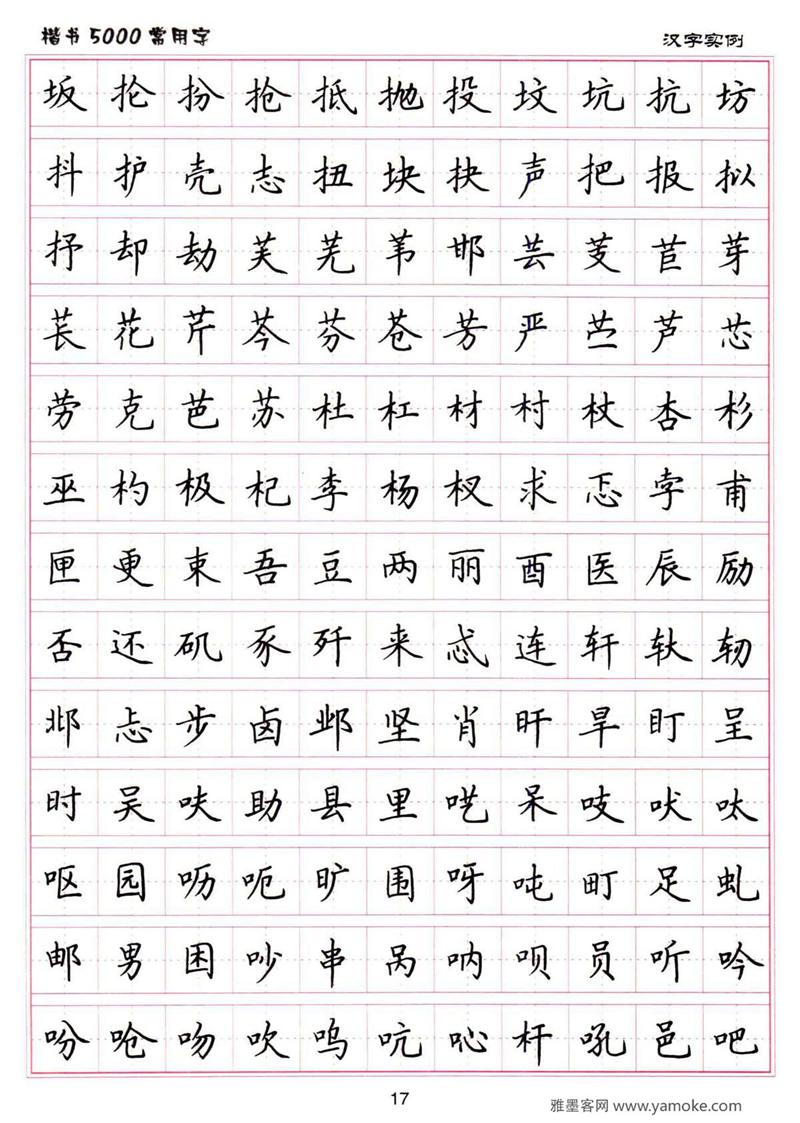 楷书5000常用字 汉字实例
坂 抡 扮 抢 抵 抛 投 坟 坑 抗 坊
抖 护 壳 志 扭 块 抉 声 把 报 拟
抒 却 劫 芙 芜 苇 邯 芸 芰 苣 芽
苌 花 芹 芩 芬 苍 芳 严 苎 芦 芯
劳 克 芭 苏 杜 杠 材 村 杖 杏 杉
巫 杓 极 杞 李 杨 杈 求 忑 孛 甫
匣 更 束 吾 豆 两 丽 酉 医 辰 励
否 还 矶 豕 歼 来 忒 连 轩 轪 轫
邶 忐 步 卤 邺 坚 肖 旰 旱 盯 呈
时 吴 呋 助 县 里 呓 呆 吱 吠 呔
呕 园 呖 呃 旷 围 呀 吨 町 足 虬
邮 男 困 吵 串 呙 呐 呗 员 听 吟
吩 呛 吻 吹 呜 吭 吣 杆 吼 邑 吧
17
雅墨客网 www.yamoke.com